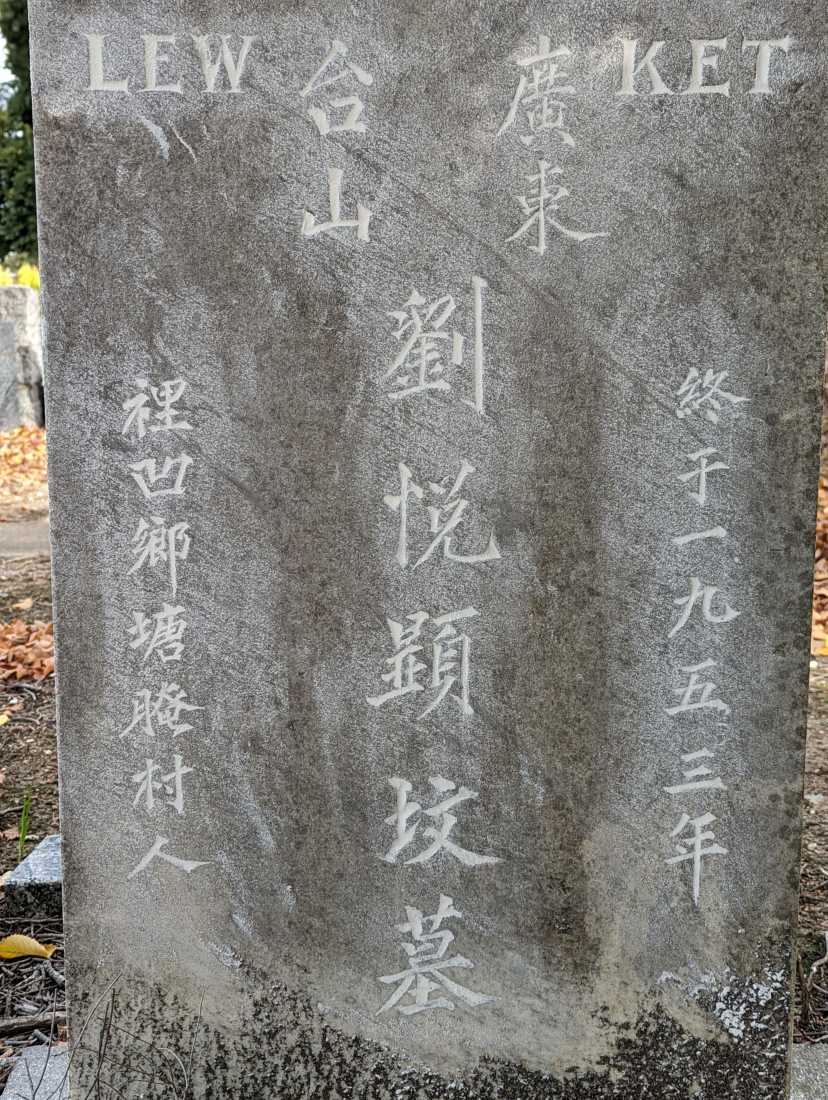 LEW KET
廣東
台山
終于一九五三年
劉悅顕坟墓
裡凹鄉塘腌村人